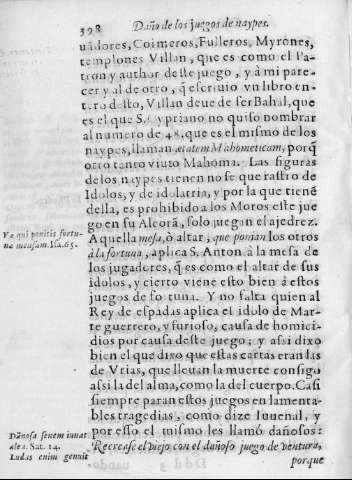 398 Daño de los juegos de naypes.
uadores, Coimeros, Fulleros, Myrones,
templones Villan, que es como el Pa-
tron y author deste juego, y à mi pare-
cer y al de otro, q̃ escriuio vn libro en-
tero desto, Villan deue de ser Bahal, que
es el que S. Cypriano no quiso nombrar
al numero de 48, que es el mismo de los
naypes, llaman ætatem Mahometicam, porq̃
otro tanto viuio Mahoma. Las figuras
de los naypes tienen no se que rastro de
Idolos, y de idolatria, y por la que tienẽ
della, es prohibido a los Moros este jue
go en su Alcorã, solo juegan el ajedrez.
Aquella mesa, ò altar, que ponian los otros
à la fortuna, aplica S. Anton. à la mesa de
los jugadores, q̃ es como el altar de sus
idolos, y cierto viene esto bien à estos
juegos de fortuna. Y no falta quien al
Rey de espadas aplica el idolo de Mar-
te guerrero, y furioso, causa de homici-
dios por causa deste juego; y assi dixo
bien el que dixo que estas cartas eran las
de Vrias, que lleuan la muerte consigo
assi la del alma, como la del cuerpo. Casi
siempre paran estos juegos en lamenta-
bles tragedias, como dize Iuuenal, y
por esso el mismo les llamò dañosos:
Recrease el viejo con el dañoso juego de ventura,
porque
Væ qui ponitis fortu-
næ mensam. Isa. 65.
Dãnosa senem iuuat
alea. Sat. 14.
Ludas enim genuit